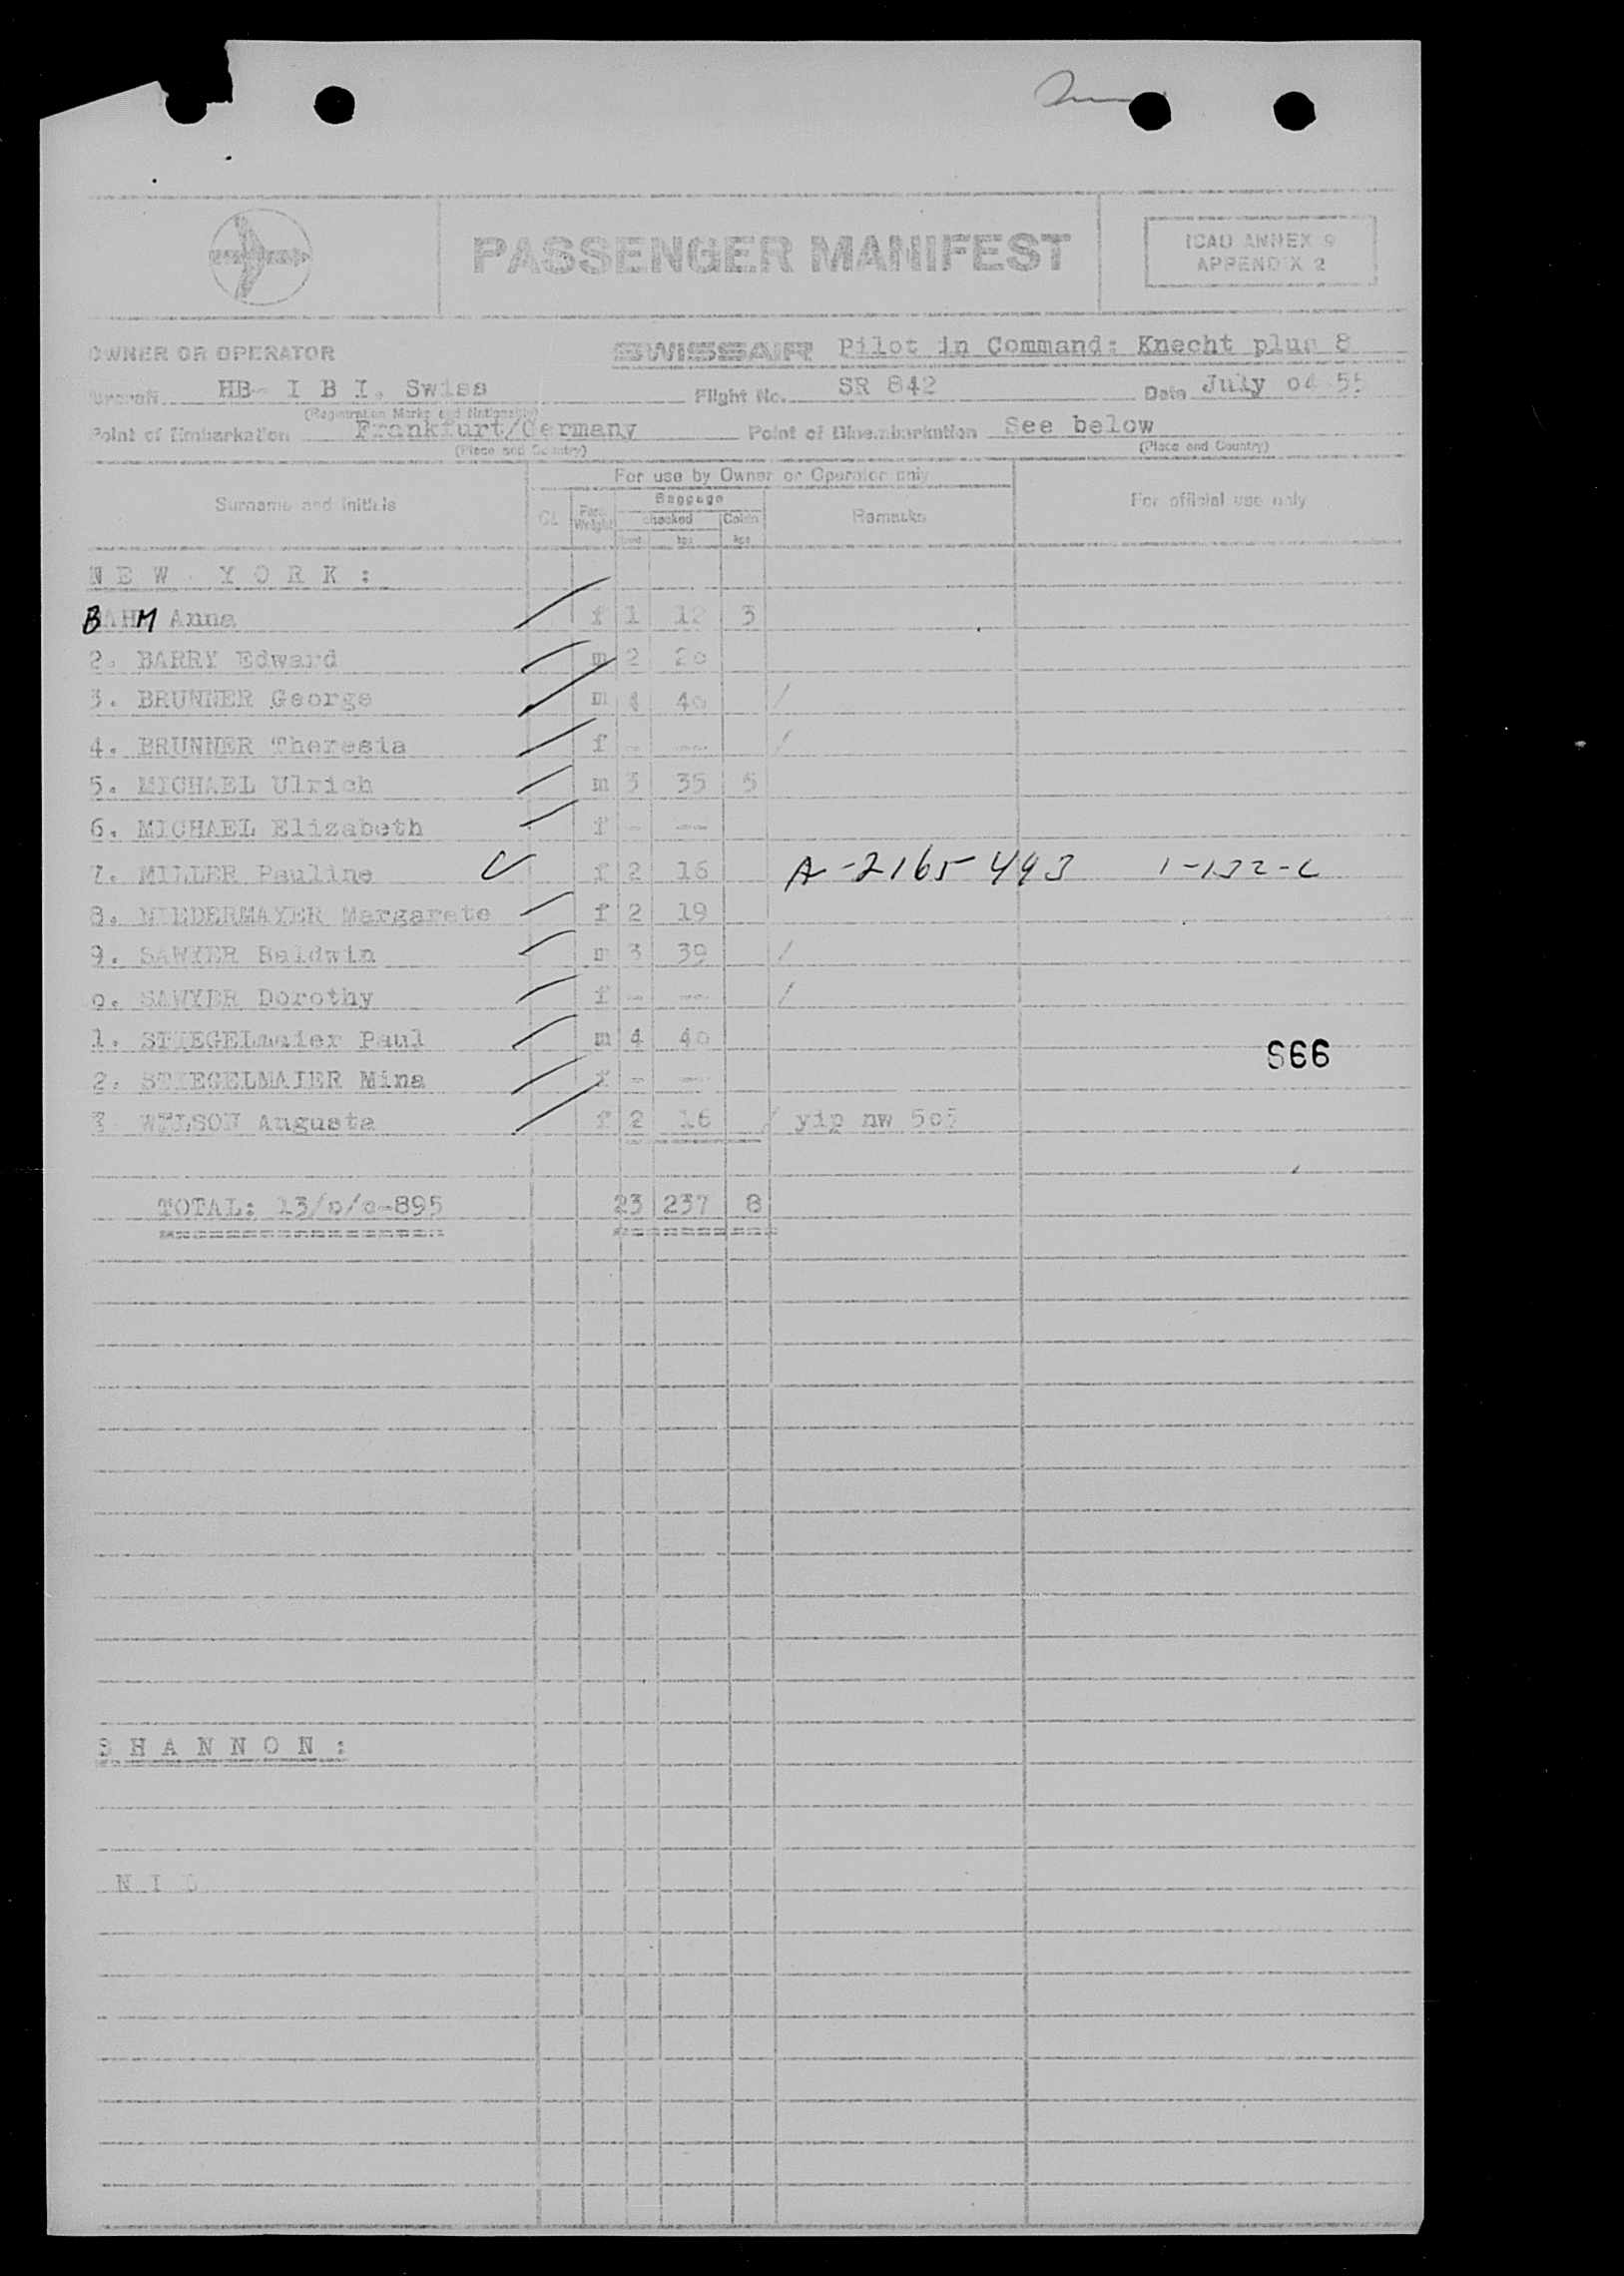 PASSENGER MANIFEST
ICAO ANNEX 9
APPENDIX 2
OWNER OR OPERATOR SWISSAIR Pilot in Command: Knecht plus 8
Aircraft HB- I B I, Swiss Flight No. SR 842 Date July o4 55
(Registration Marks and Nationality)
Point of Embarkation Frankfurt/Germany Point of Disembarkation See below
(Place and Country) (Place and Country)
For use by Owner or Operator only
Surname and initials Cl. Pass. Weight Baggage Remarks For official use only
checked Cabin
kgs kgs
N E W Y O R K :
BAHM Anna f 1 12 3
2. BARRY Edward m 2 2o
3. BRUNNER George m 4 4o /
4. BRUNNER Theresia f - -- /
5. MICHAEL Ulrich m 3 35 5
6. MICHAEL Elizabeth f - --
7. MILLER Pauline f 2 16 A-2165-493 1-132-C
8. NIEDERMAYER Margarete f 2 19
9. SAWYER Baldwin m 3 39 /
o. SAWYER Dorothy f - -- /
1. STIEGELmaier Paul m 4 4o
966
2. STIEGELMAIER Mina f - --
3 WILSON Augusta f 2 16 / yip nw 5o5
TOTAL: 13/o/o-895 23 237 8
S H A N N O N :
N I L